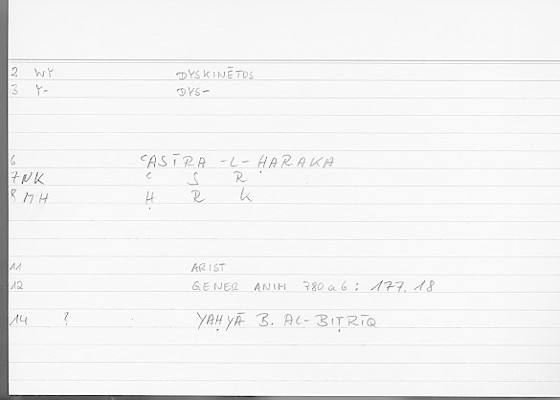 2 WY DYSKINĒTOS
3 Y- DYS-
6 ʿASĪRA -L- ḤARAKA
7 NK ʿ S R
8 MH Ḥ R K
11 ARIST
12 GENER ANIM 780a6: 177.18
14 ? YAḤYĀ B. AL-BIṬRĪQ